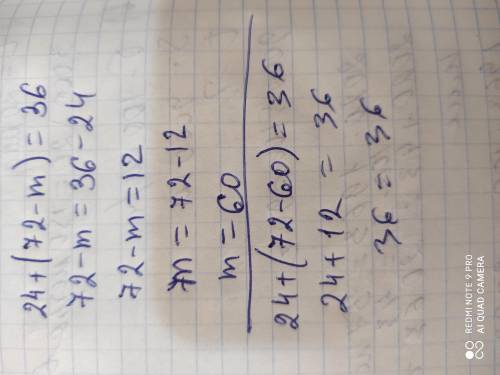 24+(72-m)=36
72-m=36-24
72-m=12
m=72-12
m=60
24+(72-60)=36
24+12=36
36=36
REDMI NOTE 9 PRO
AI QUAD CAMERA